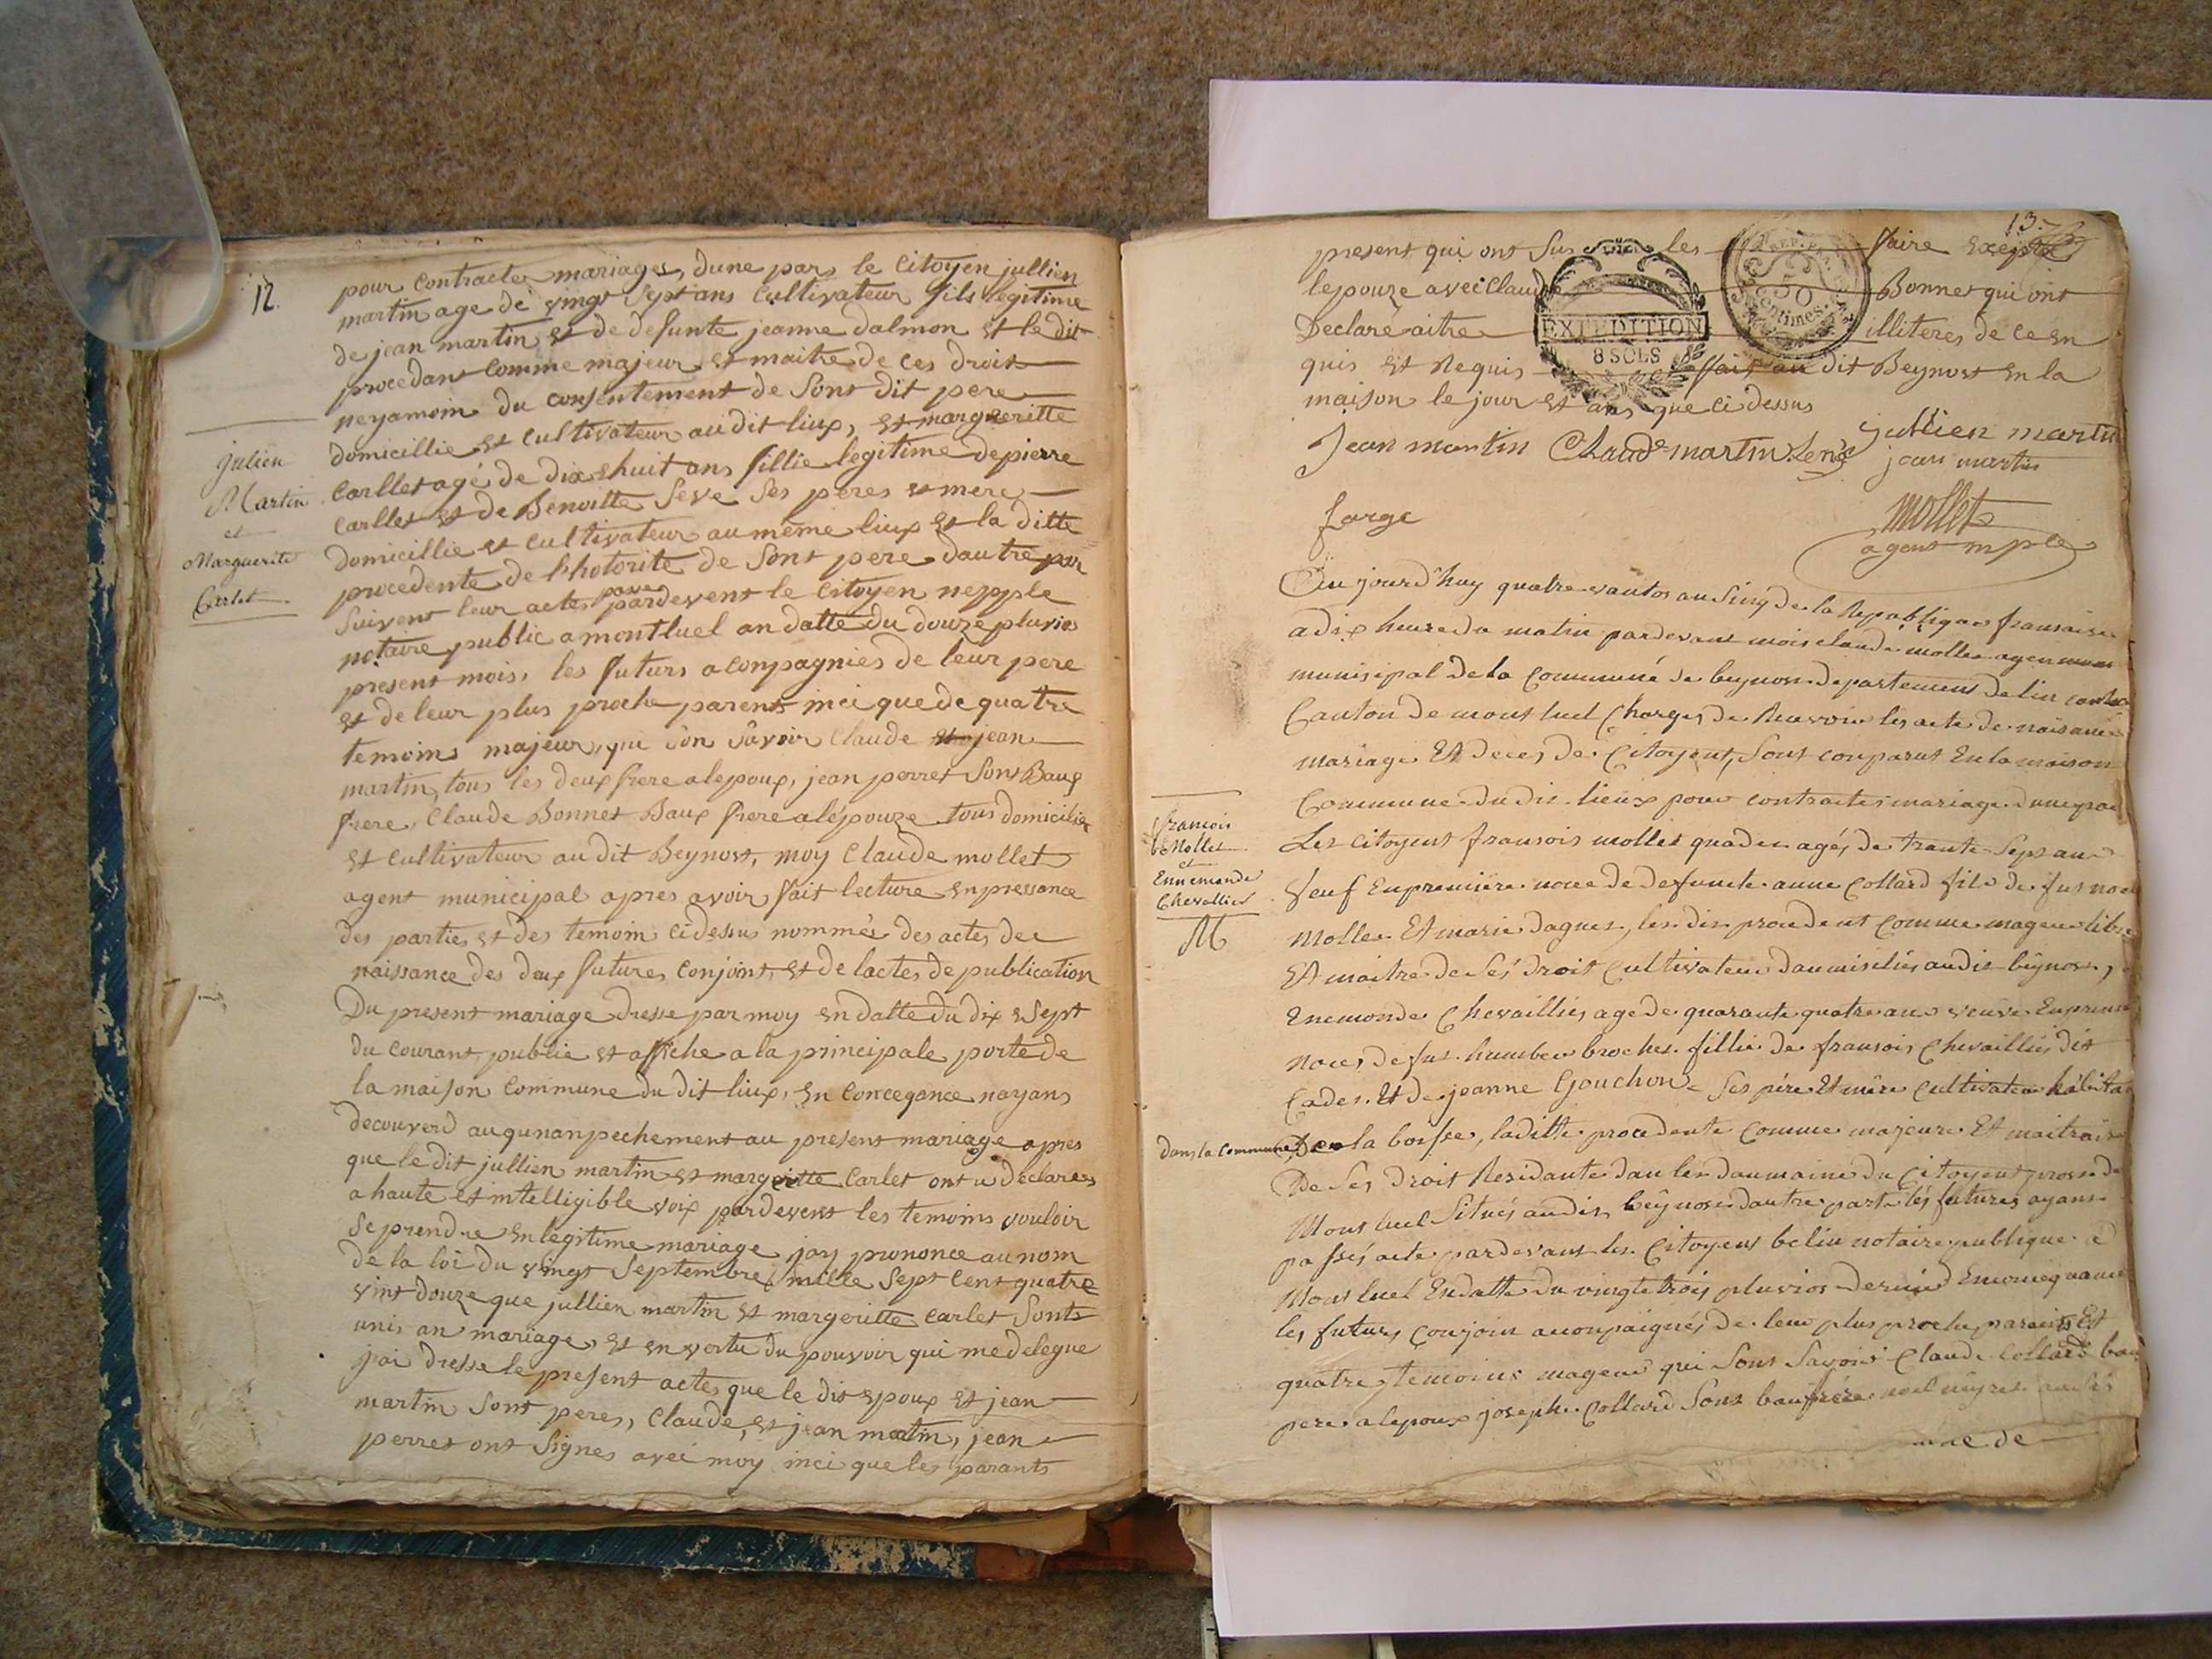 12.
pour contracter mariages, dune pars le citoyen jullien
martin age de vingt sept ans cultivateur fils legitime
de jean martin et de defunte jeanne dalmon et le dit
procedant comme majeur et maitre de ces droit
neyamoin du consentement de sont dit pere
domicillie et cultivateur au dit liux, et margueritte
carllet agé de dix huit ans fillie legitime de pierre
carllet et de Benoitte Seve ses peres et mere
domicillie et cultivateur au même liux et la ditte
procedente de l'hotorité de sont pere dautre par
suivent leur actes passe pardevent le citoyen nepple
notaire public a montluel an datte du douze pluvios
present mois, les futurs aconpagnies de leur pere
et de leur plus proche parents inci que de quatre
temoins majeur, qui son savoir Claude et jean
martin, tous les deux frere a lepoux, jean perret sont Baux
frere, Claude Bonnet Baux frere a lépouze tous domicilie
et cultivateur au dit Beynost, moy Claude mollet
agent municipal apres avoir fait lecture en pressance
des parties et des temoin ci dessus nommés des actes de
naissance des deux futures conjoint, et de lactes de publication
Du present mariage dresse par moy en datte du dix e sept
du courant, publie et affiche a la principale porte de
la maison commune du dit liux, en concegance nayans
decouverd auqunanpechement au present mariage apres
que le dit jullien martin et margeritte Carlet ont u declares
a haute et intelligible voix pardevent les temoins vouloir
se prendre en legitime mariage jay prononce au nom
de la loi du vingt Septembre mille sept cent quatre
vint douze que jullien martin et margeritte carlet sont
unis an mariage, et en vertu du pouvoir qui me delegue
j'ai dresse le present actes que le dit epoux et jean
martin sont peres, Claude, et jean martin, jean
perret ont signes aveé moy inci que les parants
Julien
Martin
et
Marguerite
Carlet
13.
present qui ont sus les faire exepte
lepouze avec Claud Bonnet qui ont
Declaré aitre illiteres de ce en
quis et Requis fait au dit Beynost en la
maison le jour et ans que ci dessus
EXPEDITION
8 SOLS
REP. FRA
50
centimes
Jean martin Claude martin Lené jullien martin
jean martin
farge
mollet
agent mple
Au jourd'huy quatre vantos an sinq de la Republique fransaise
a dix heure du matin pardevant mois claude mollet agen
munisipal de la Communé de beynost departement de lin
Canton de mont luel Charges de Recevoir les acte de naisance
mariage Et deces de Citoyent, Sont conparut En la maison
Commune du dit lieux pour contracter mariage dune par
Les citoyent fransois mollet quadet agés de trante sept ans
veuf En premiere noce de defuncte anne Collard fils de fut noel
Mollet Et marie dagnes, les dit procedent comme mageur libre
Et maitre de Sés droit Cultivateur daumisiliés au dit beynost,
Enemonde Chevaillies age de quarante quatre ans veuve En premie
noces de fut humber broches fillie de fransois Chevaillies dit
Cadet Et de jeanne Gouchon Ses pére Et mére Cultivateur habitan
dans la commune De la boisse, laditte procedente comme majeure Et maitraise
De Ses Droit Residante dan les daumaine du Citoyent prosse de
Mont luel Situés au dit beynost dautre part les futures ayant
passés acte pardevant les Citoyent belin notaire publique a
Mont luel En datte du vingte trois pluvios dernie En consequance
les futurs conjoin aconpaignés de leur plus proche paraint Et
quatre temoins mageur qui Sont Savoir Claude Collard bau
pere a lepoux joseph Collard Sont baufrére noel
François
Mollet
et
Ennemonde
Chevallier
M